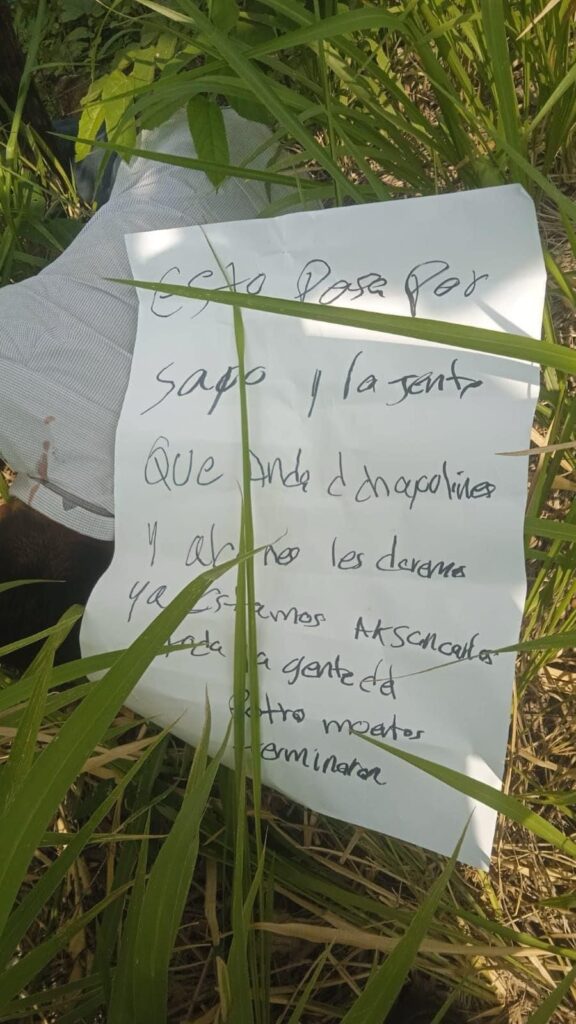 Esto Pasa Por
sapo y la gente
QUE Anda d chapolines
y ah nos les daremos
ya Estamos AKSancarlos
toda la gente del
Potro muertos
terminaran